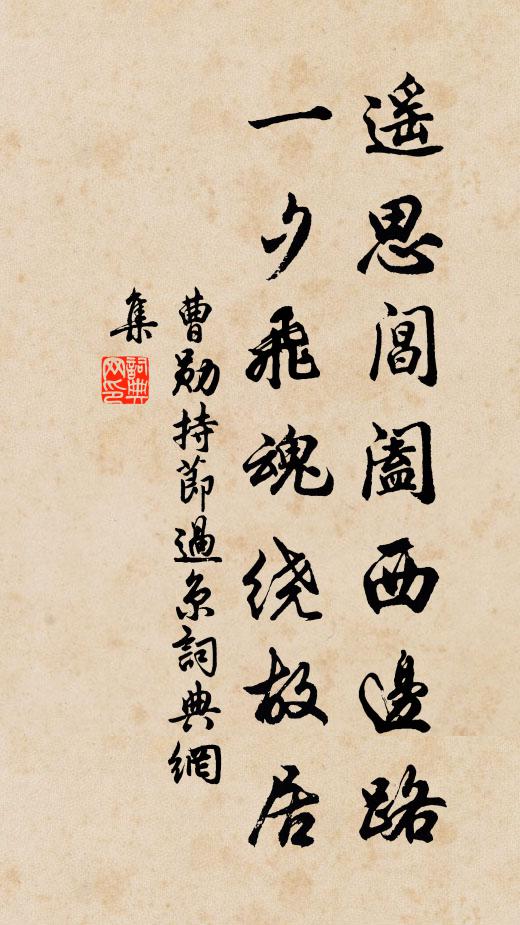 遥思閶闔西邊路
一夕飛魂绕故居
曹勋持節過京詞典網
集
詞典網印